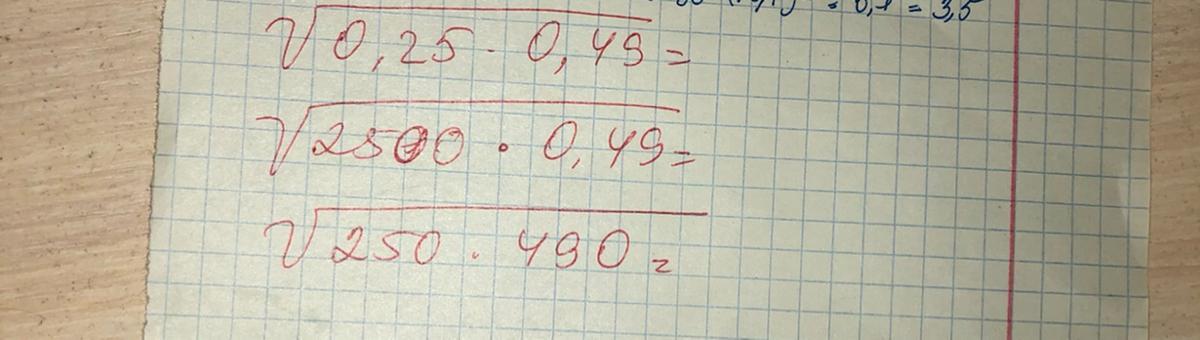 = 3,5
√0,25 · 0,49 =
√2500 · 0,49 =
√250 · 490 =